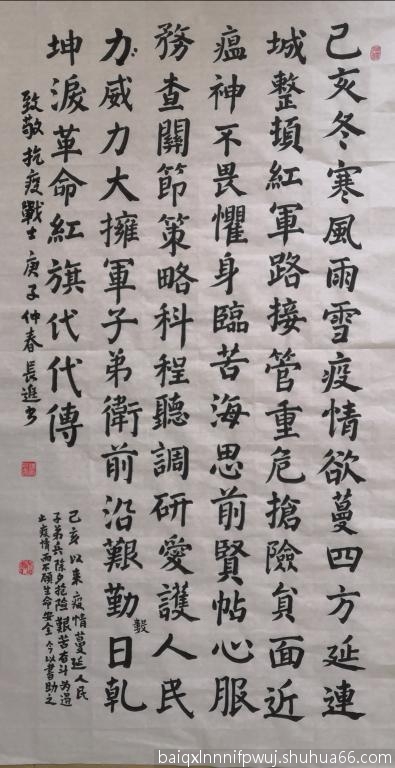 己亥冬寒風雨雪疫情欲蔓四方延連
城整頓紅軍路接管重危搶險貟面近
瘟神不畏懼身臨苦海思前賢帖心服
務查關節策略科程聽調研愛護人民
力威力大擁軍子弟衛前沿艱勤日乾
毅
坤淚革命紅旗代代傳
致敬抗疫戰士庚子仲春長進书
己亥以来疫情蔓延人民
子弟兵除夕抢险艱苦奋斗为遏
止疫情而不顾生命安全今以書助之
baiqxlnnnifpwuj.shuhua66.com